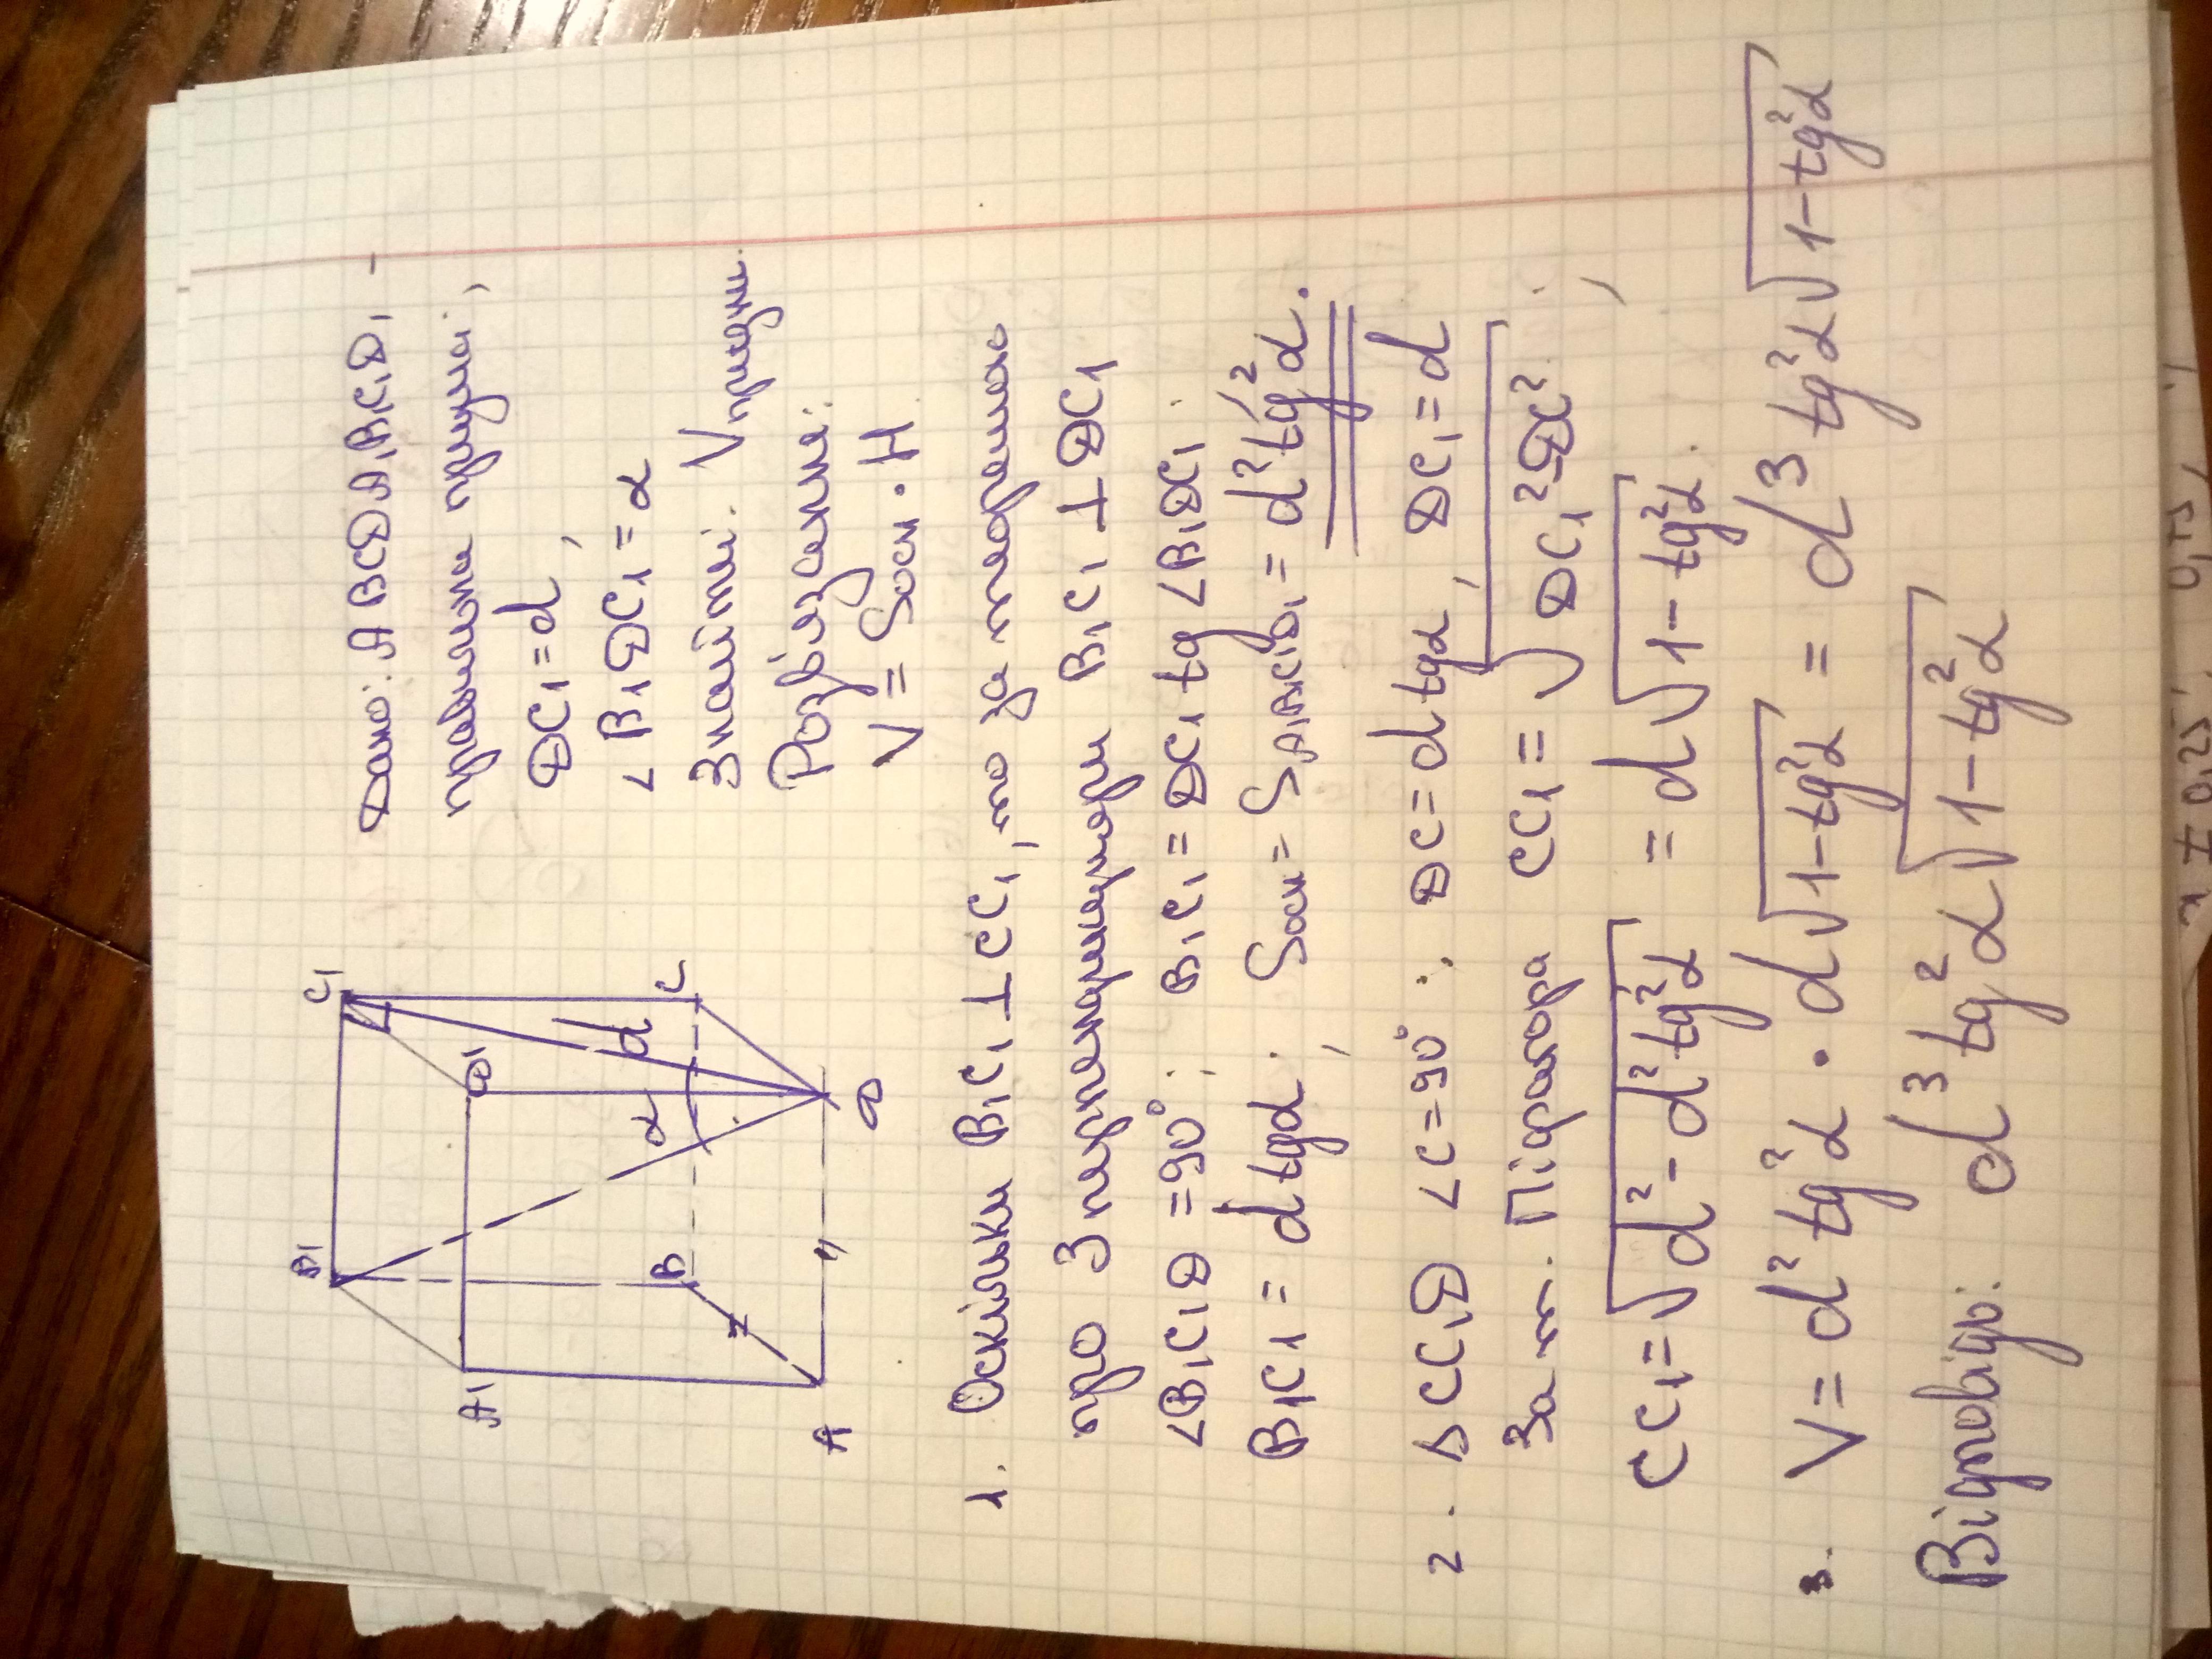 Дано: ABCDA₁B₁C₁D₁ –
правильна призма;
DC₁ = d,
∠B₁DC₁ = α
Знайти: Vпризм.
Розв'язання:
V = Sосн · H
B₁
C₁
A₁
D₁
d
α
B
C
A
D
1. Оскільки B₁C₁ ⊥ CC₁, то за теоремою
про 3 перпендикуляри B₁C₁ ⊥ DC₁
∠B₁C₁D = 90°; B₁C₁ = DC₁ tg ∠B₁DC₁
B₁C₁ = d tgα; Sосн = SA₁B₁C₁D₁ = d² tg²α.
2. Δ CC₁D ∠C = 90°: DC = d tgα, DC₁ = d
За т. Піфагора CC₁ = √DC₁² - DC²;
CC₁ = √d² - d² tg²α = d√1 - tg²α.
3. V = d² tg²α · d√1 - tg²α = d³ tg²α√1 - tg²α
Відповідь: d³ tg²α√1 - tg²α